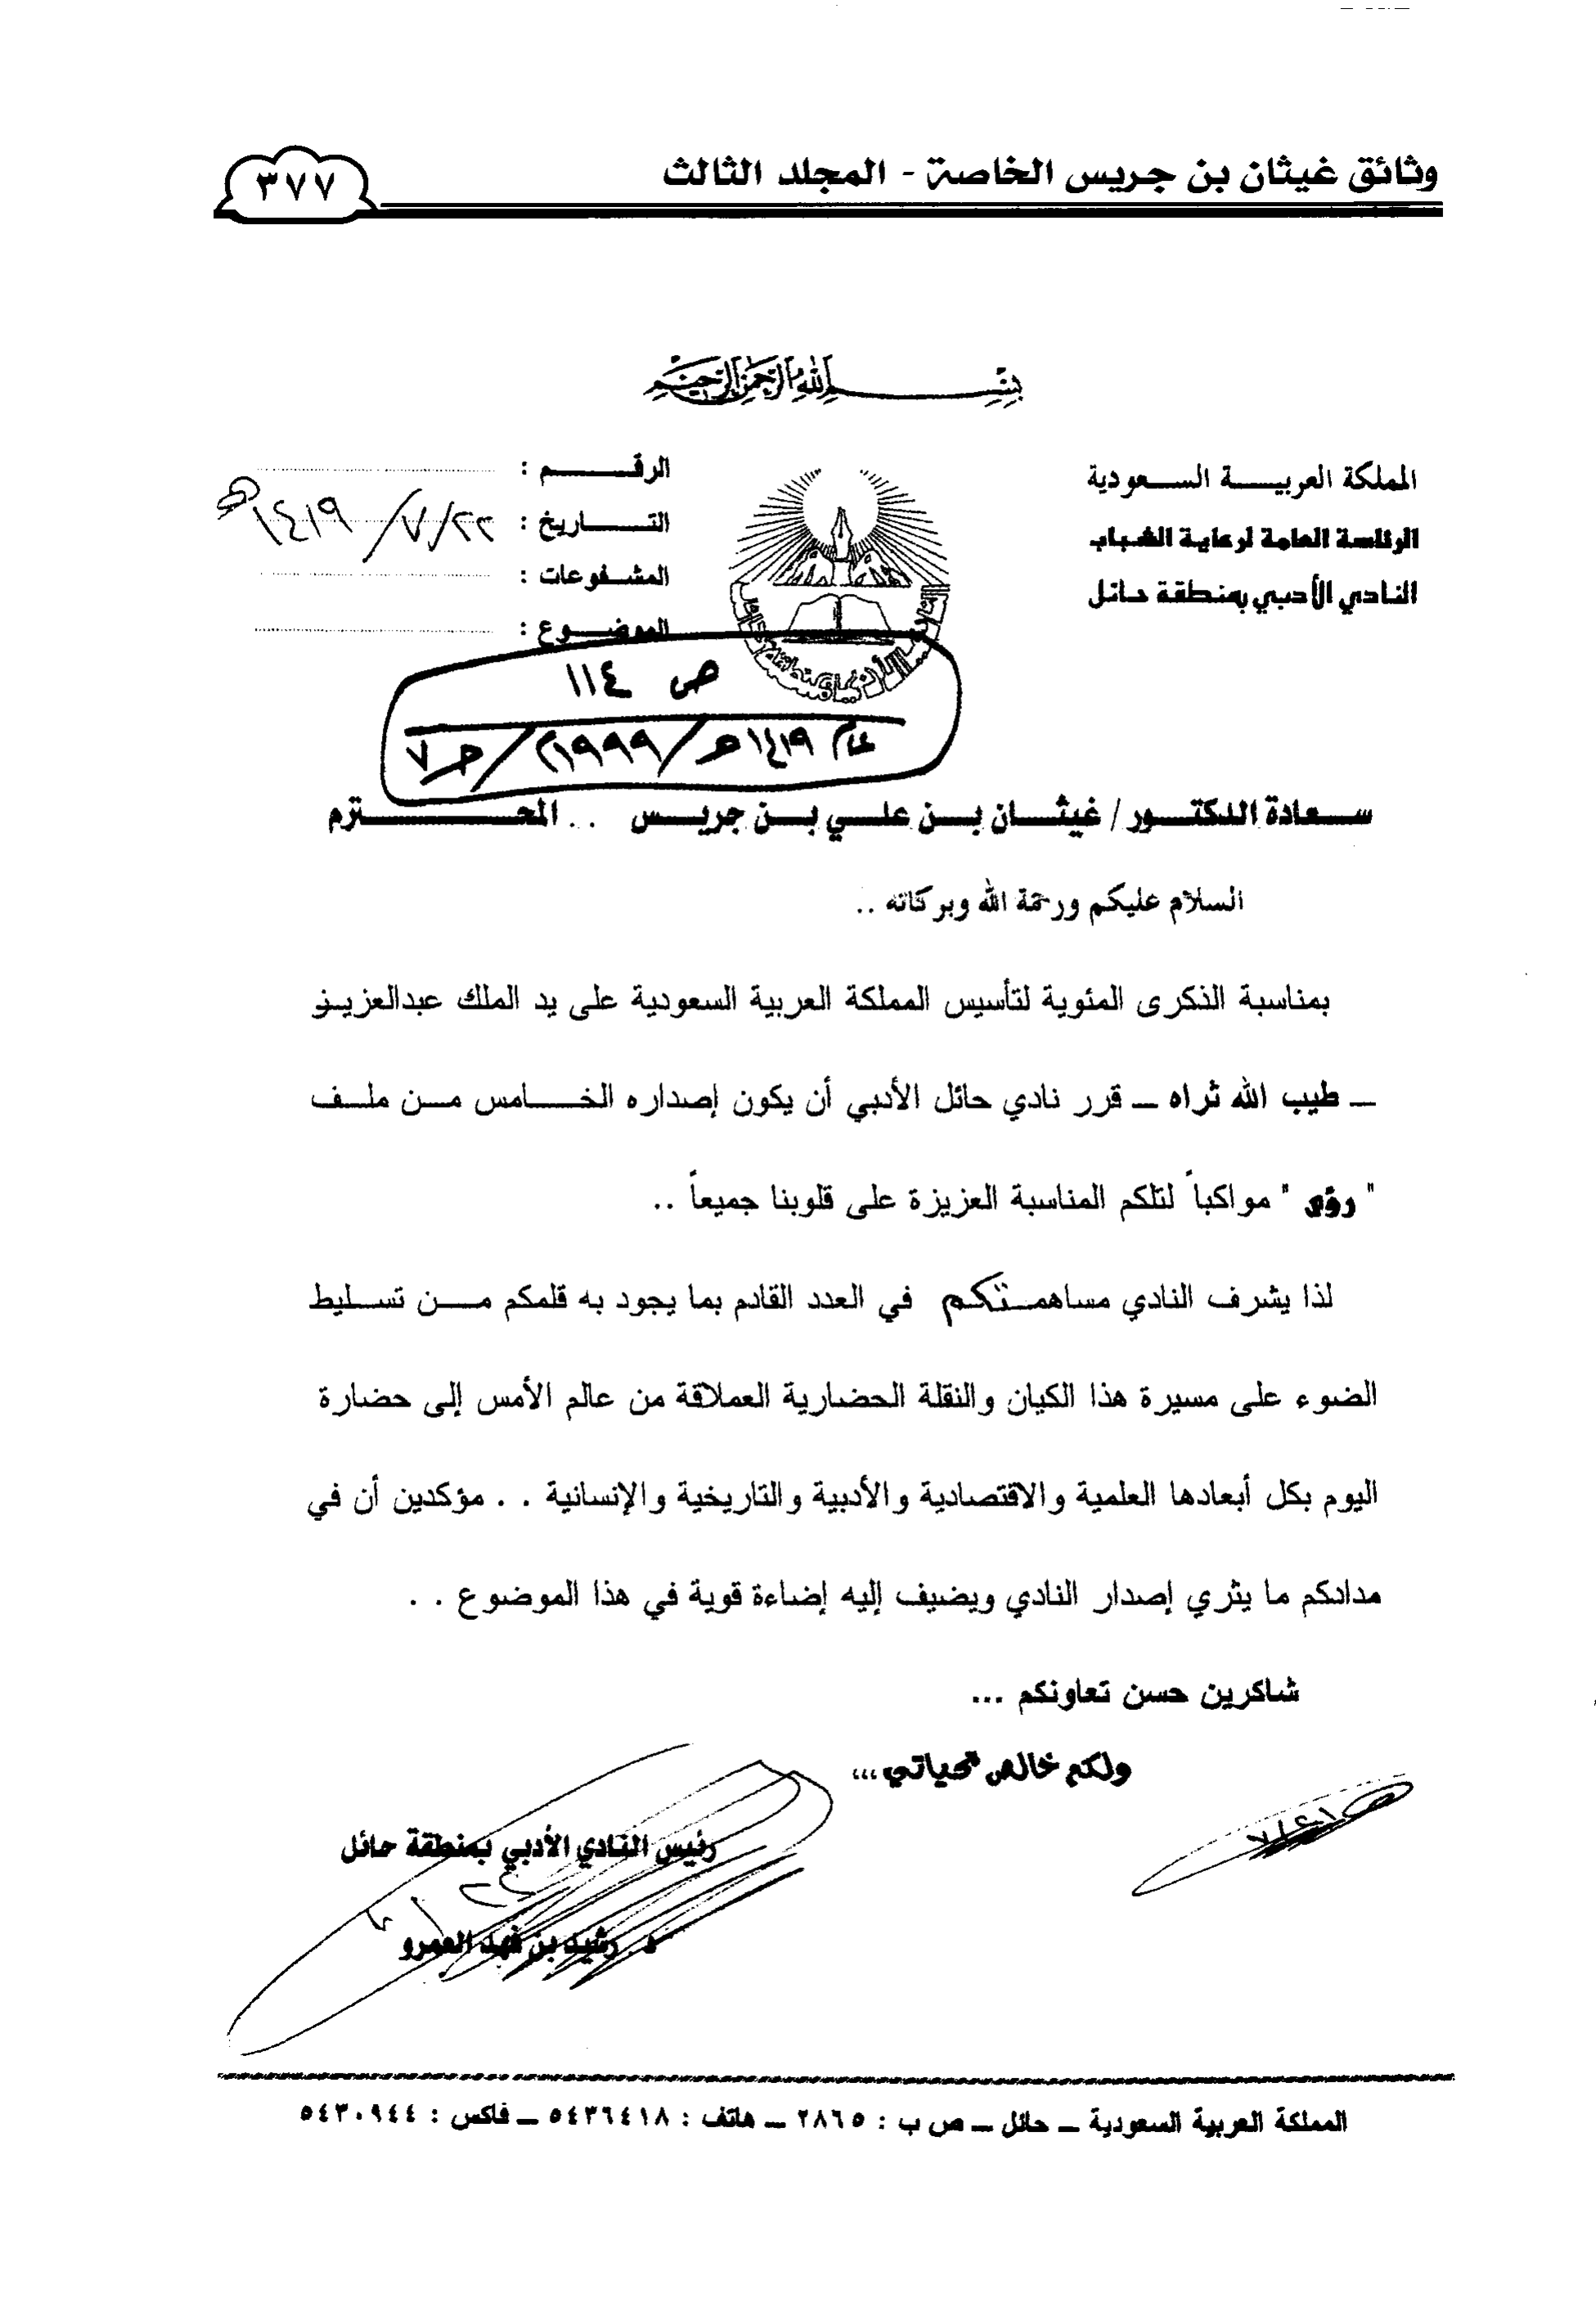 وثائق غيثان بن جريس الخاصة - المجلد الثالث
٣٧٧
بسم الله الرحمن الرحيم
المملكة العربية السعودية
الرئاسة العامة لرعاية الشباب
النادي الأدبي بمنطقة حائل
الرقم :
التاريخ : ٢٢/٧/١٤١٩هـ
المشفوعات :
الموضوع :
ص ١١٤
عام ١٤١٩هـ/١٩٩٩م/جـ٧
سعادة الدكتور / غيثان بن علي بن جريس .. المحترم
السلام عليكم ورحمة الله وبركاته ..
بمناسبة الذكرى المئوية لتأسيس المملكة العربية السعودية على يد الملك عبدالعزيز
ـ طيب الله ثراه ـ قرر نادي حائل الأدبي أن يكون إصداره الخامس من ملف
" رؤى " مواكباً لتلكم المناسبة العزيزة على قلوبنا جميعاً ..
لذا يشرف النادي مساهمتكم في العدد القادم بما يجود به قلمكم من تسليط
الضوء على مسيرة هذا الكيان والنقلة الحضارية العملاقة من عالم الأمس إلى حضارة
اليوم بكل أبعادها العلمية والاقتصادية والأدبية والتاريخية والإنسانية . . مؤكدين أن في
مدادكم ما يثري إصدار النادي ويضيف إليه إضاءة قوية في هذا الموضوع . .
شاكرين حسن تعاونكم ...
ولكم خالص تحياتي ،،،
رئيس النادي الأدبي بمنطقة حائل
د. رشيد بن فهد العمرو
المملكة العربية السعودية ـ حائل ـ ص ب : ٢٨٦٥ ـ هاتف : ٥٤٣٦٤١٨ ـ فاكس : ٥٤٣٠٩٤٤